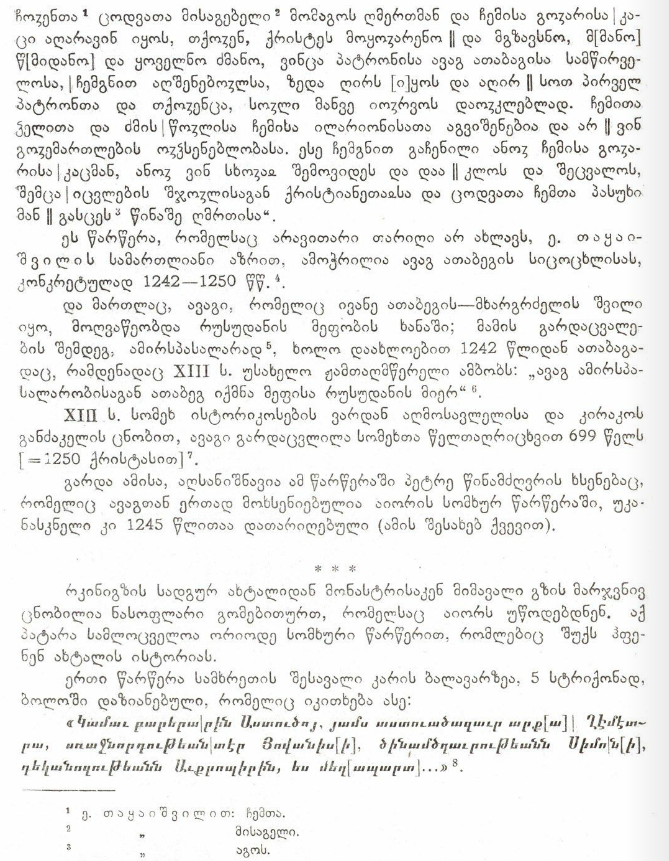 ჩოჳენთა¹ ცოდვათა მისაგებელი² მომაგოს ღმერთმან და ჩემისა გოჳარისა|კა-
ცი აღარავინ იყოს, თქოჳენ, ქრისტეს მოყოჳარენო || და მგზავსნო, მ[მანო]
წ[მიდანო] და ყოველნო ძმანო, ვინცა პატრონისა ავაგ ათაბაგისა სამწირვე-
ლოსა,|ჩემგნით აღშენებოჳლსა, ზედა ღირს [ი]ყოს და აღირ || სოთ პირველ
პატრონთა და თქოჳენცა, სოჳლი მანვე იოჳრვოს დაოჳკლებლად. ჩემითა
ჴელითა და ძმის|წოჳლისა ჩემისა ილარიონისათა აგვიშენებია და არ || ვინ
გოჳემართლების ოჳჴსენებლობასა. ესე ჩემგნით გაჩენილი ანოჳ ჩემისა გოჳა-
რისა|კაცმან, ანოჳ ვინ სხოჳაჲ შემოვიდეს და დაა||კლოს და შეცვალოს,
შემცა|იცვლების მჯოჳლისაგან ქრისტიანეთაჲსა და ცოდვათა ჩემთა პასუხი
მან || გასცეს³ წინაშე ღმრთისა“.
ეს წარწერა, რომელსაც არავითარი თარიღი არ ახლავს, ე. თაყაი-
შვილის სამართლიანი აზრით, ამოჭრილია ავაგ ათაბეგის სიცოცხლისას,
კონკრეტულად 1242—1250 წწ.⁴.
და მართლაც, ავაგი, რომელიც ივანე ათაბეგის—მხარგრძელის შვილი
იყო, მოღვაწეობდა რუსუდანის მეფობის ხანაში; მამის გარდაცვალე-
ბის შემდეგ, ამირსპასალარად⁵, ხოლო დაახლოებით 1242 წლიდან ათაბაგა-
დაც, რამდენადაც XIII ს. უსახელო ჟამთაღმწერელი ამბობს: „ავაგ ამირსპა-
სალარობისაგან ათაბეგ იქმნა მეფისა რუსუდანის მიერ“ ⁶.
XIII ს. სომეხ ისტორიკოსების ვარდან აღმოსავლელისა და კირაკოს
განძაკელის ცნობით, ავაგი გარდაცვლილა სომეხთა წელთაღრიცხვით 699 წელს
[=1250 ქრისტასით]⁷.
გარდა ამისა, აღსანიშნავია ამ წარწერაში პეტრე წინამძღვრის ხსენებაც,
რომელიც ავაგთან ერთად მოხსენიებულია აიორის სომხურ წარწერაში, უკა-
ნასკნელი კი 1245 წლითაა დათარიღებული (ამის შესახებ ქვევით).
* * *
რკინიგზის სადგურ ახტალიდან მონასტრისაკენ მიმავალი გზის მარჯვნივ
ცნობილია ნასოფლარი გომებითურთ, რომელსაც აიორს უწოდებდნენ. აქ
პატარა სამლოცველოა ორიოდე სომხური წარწერით, რომლებიც შუქს ჰფე-
ნენ ახტალის ისტორიას.
ერთი წარწერა სამხრეთის შესავალი კარის ბალავარზეა, 5 სტრიქონად,
ბოლოში დაზიანებული, რომელიც იკითხება ასე:
«Կամաւ բարերա|րին Աստուծոյ, յամս աստուածազաւր արք[ա]| Դէմէտ-
րա, առաջնորդութեան|տէր Յովանիս[ի], ծինամծղաւրութեանն Սիմո|ն[ի],
դեկանոզութեանն Աւքրոպիրին, ես մեղ[ապարտ]...» ⁸.
¹ ე. თაყაიშვილით: ჩემთა.
² „ მისაგელი.
³ „ აგოს.